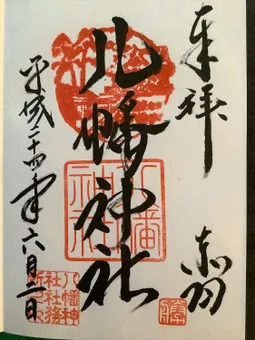 奉拝
赤羽
八幡神社
八幡神社
平成二十四年六月二日
八幡神
社社務
所之印